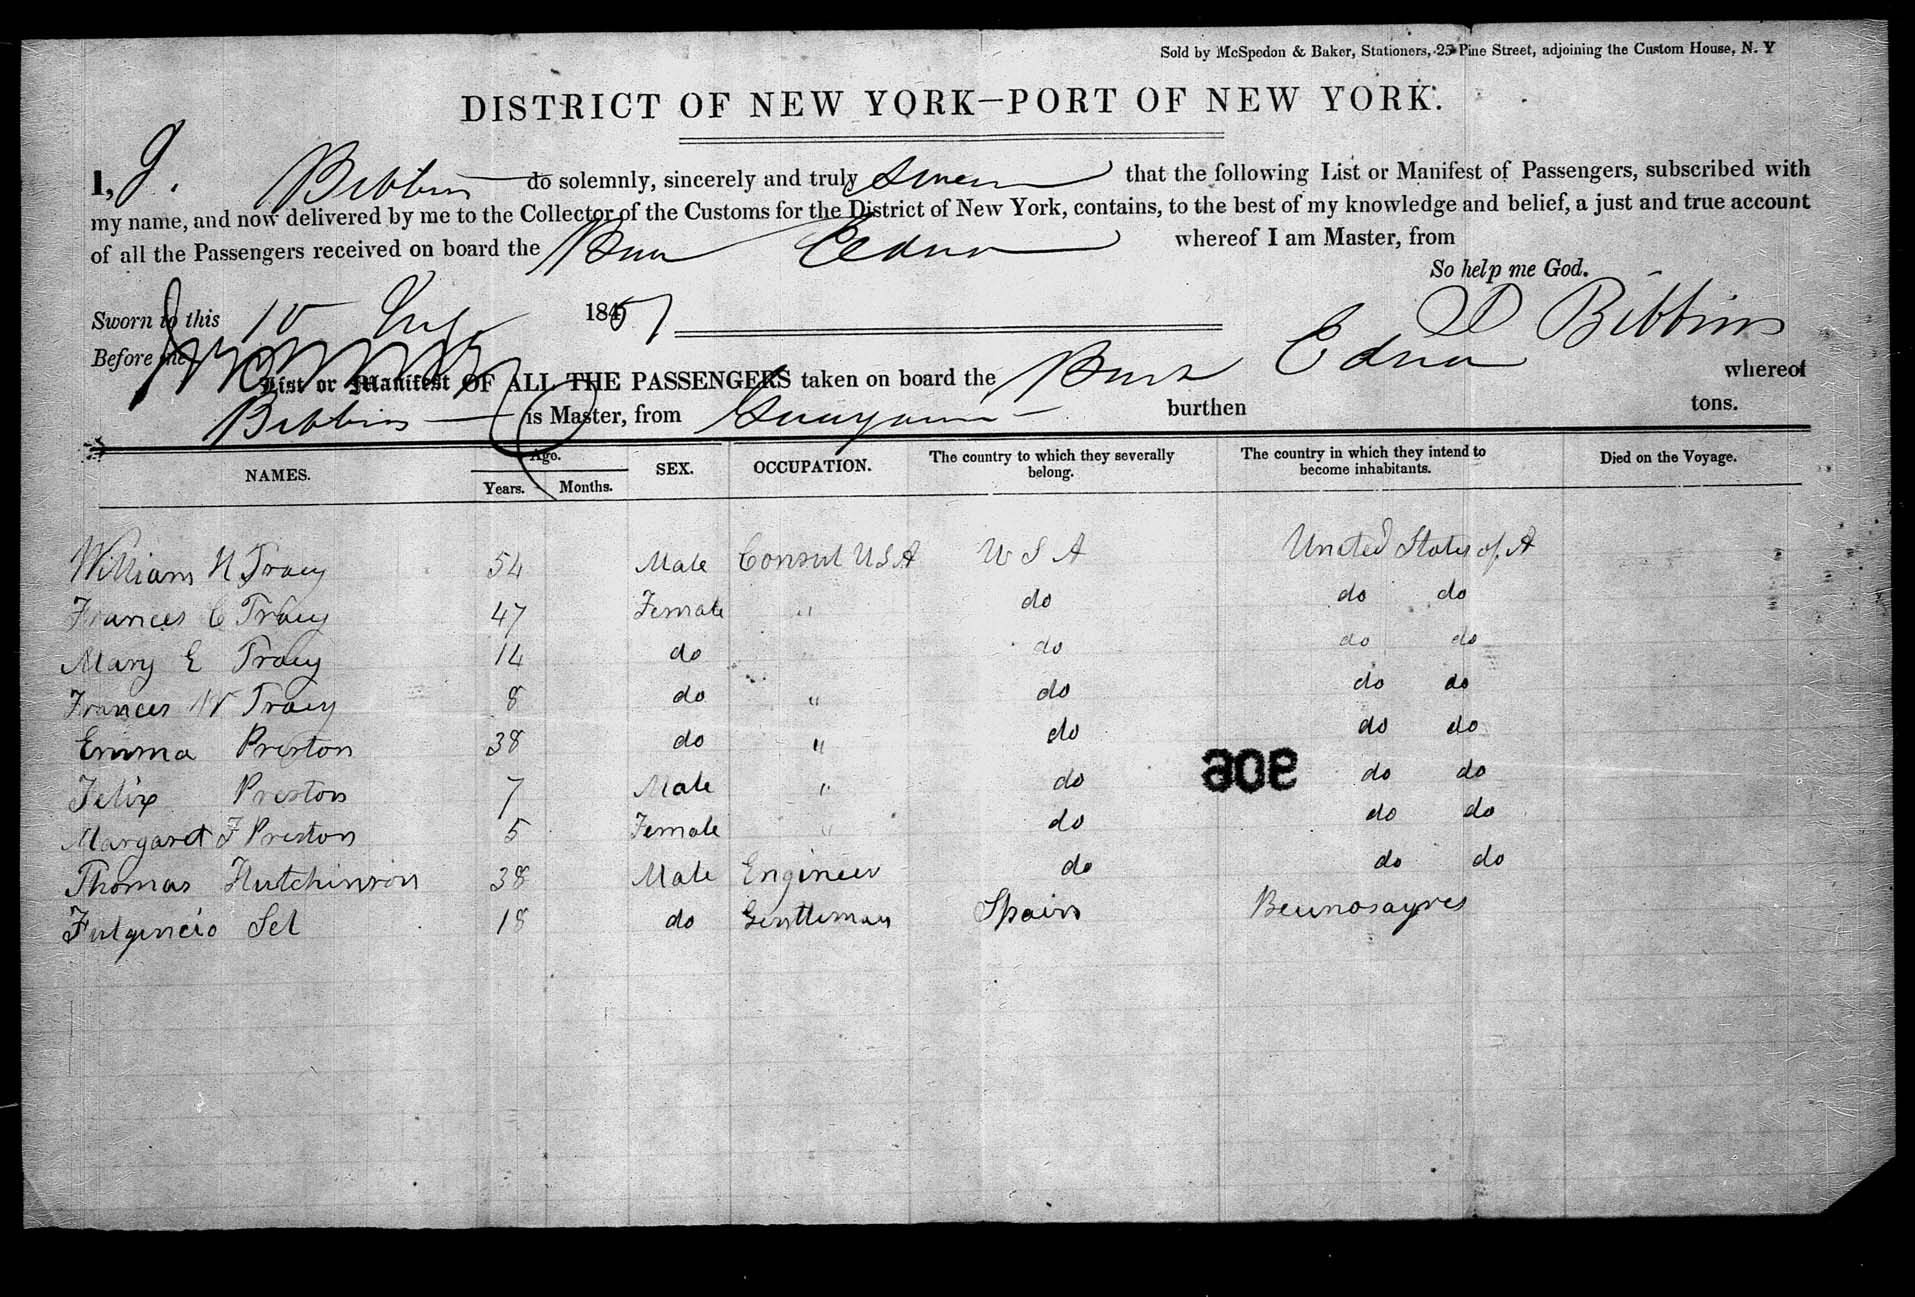 Sold by McSpedon & Baker, Stationers, 25 Pine Street, adjoining the Custom House, N. Y
DISTRICT OF NEW YORK—PORT OF NEW YORK.
I, J. Bibbins do solemnly, sincerely and truly swear that the following List or Manifest of Passengers, subscribed with
my name, and now delivered by me to the Collector of the Customs for the District of New York, contains, to the best of my knowledge and belief, a just and true account
of all the Passengers received on board the Edna whereof I am Master, from
So help me God.
Sworn to this 10 1851
Bibbins
Before me
List or Manifest OF ALL THE PASSENGERS taken on board the Bark Edna whereof
Bibbins is Master, from burthen tons.
NAMES. Age. Years. Months. SEX. OCCUPATION. The country to which they severally belong. The country in which they intend to become inhabitants. Died on the Voyage.
William N Tracy 54 Male Consul USA U S A United States of A
Frances C Tracy 47 Female " do do do
Mary E Tracy 14 do do do do
Frances W Tracy 8 do " do do do
Emma Preston 38 do " do do do
Felix Preston 7 Male " do do do
Margaret F Preston 5 Female " do do do
Thomas Hutchinson 38 Male Engineer do do do
Fulgencio Sel 18 do Gentleman Spain Beunosayres